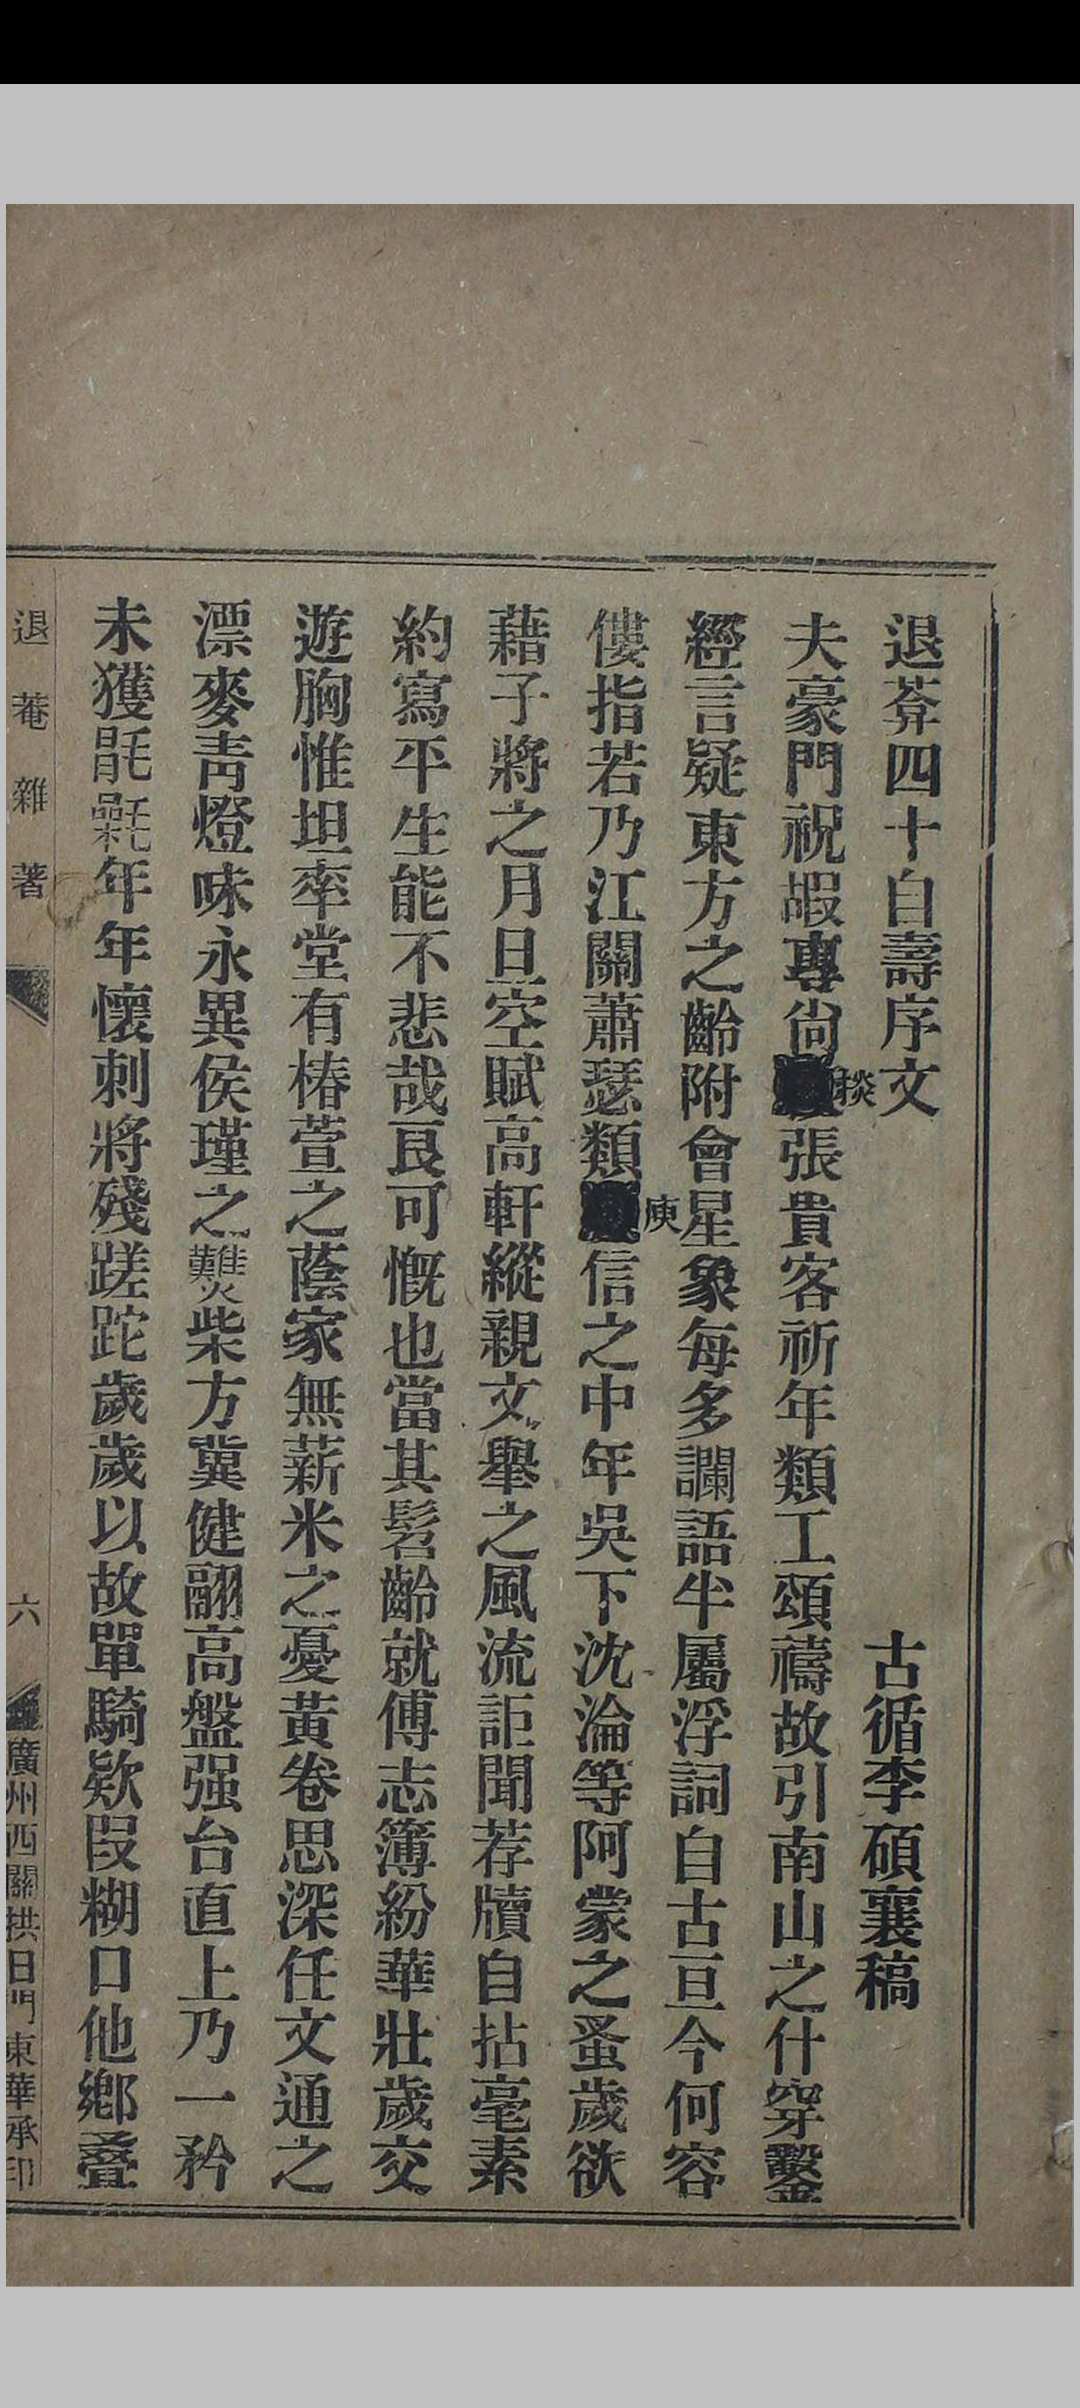 退葊四十自壽序文
古循李碩襄稿
夫豪門祝嘏專尙掞張貴客祈年類工頌禱故引南山之什穿鑿
經言疑東方之齡附會星象每多讕語半屬浮詞自古亘今何容
僂指若乃江關蕭瑟類庾信之中年吳下沈淪等阿蒙之蚤歲欲
藉子將之月旦空賦高軒縱親文舉之風流詎聞荐牘自拈毫素
約寫平生能不悲哉良可慨也當其髫齡就傅志簿紛華壯歲交
遊胸惟坦率堂有椿萱之蔭家無薪米之憂黃卷思深任文通之
漂麥靑燈味永異侯瑾之難柴方冀健翮高盤强台直上乃一矜
未獲毷氉年年懷刺將殘蹉跎歲歲以故單騎欵段糊口他鄉叠
退菴雜著
六
廣州西關拱日門東華承印